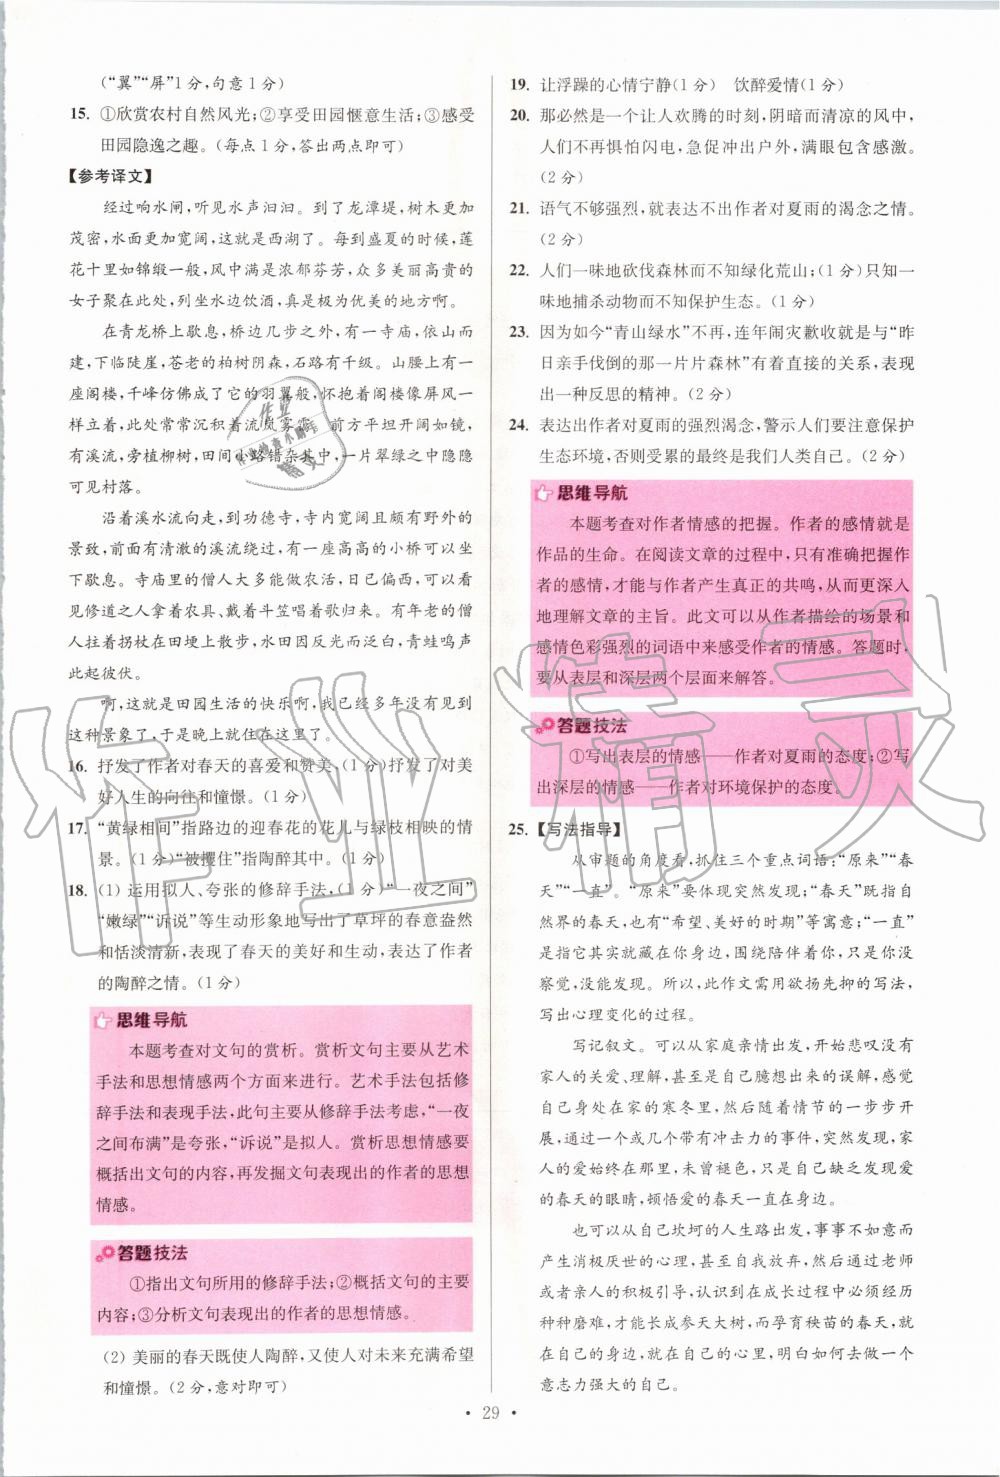 (“翼”“屏”1分,句意1分)
15. ①欣赏农村自然风光;②享受田园惬意生活;③感受
田园隐逸之趣。(每点1分,答出两点即可)
【参考译文】
经过响水闸,听见水声汩汩。到了龙潭堤,树木更加
茂密,水面更加宽阔,这就是西湖了。每到盛夏的时候,莲
花十里如锦缎一般,风中满是浓郁芬芳,众多美丽高贵的
女子聚在此处,列坐水边饮酒,真是极为优美的地方啊。
在青龙桥上歇息,桥边几步之外,有一寺庙,依山而
建,下临陡崖,苍老的柏树阴森,石路有千级。山腰上有一
座阁楼,千峰仿佛成了它的羽翼般,怀抱着阁楼像屏风一
样展开,此处常常沉积着流岚雾霭。前方平坦开阔如镜,
有溪流,旁植柳树,田间小路错杂其中,一片翠绿之中隐隐
可见村落。
沿着溪水流向走,到功德寺,寺内宽阔且颇有野外的
景致,前面有清澈的溪流绕过,有一座高高的小桥可以坐
下歇息。寺庙里的僧人大多能做农活,日已偏西,可以看
见修道之人拿着农具、戴着斗笠唱着歌归来。有年老的僧
人拄着拐杖在田埂上散步,水田因反光而泛白,青蛙鸣声
此起彼伏。
啊,这就是田园生活的快乐啊!我已经多年没有见到
这种景象了,于是晚上就住在这里了。
16. 抒发了作者对春天的喜爱和赞美,(1分)抒发了对美
好人生的向往和憧憬。(1分)
17. “黄绿相间”指路边的迎春花的花儿与绿枝相映的情
景。(1分)“被攫住”指陶醉其中。(1分)
18. (1) 运用拟人、夸张的修辞手法,(1分)“一夜之间”
“嫩绿”“诉说”等生动形象地写出了草坪的春意盎然
和恬淡清新,表现了春天的美好和生动,表达了作者
的陶醉之情。(1分)
思维导航
本题考查对文句的赏析。赏析文句主要从艺术
手法和思想情感两个方面来进行。艺术手法包括修
辞手法和表现手法,此句主要从修辞手法考虑,“一夜
之间布满”是夸张,“诉说”是拟人。赏析思想情感要
概括出文句的内容,再发掘文句表现出的作者的思想
情感。
答题技法
①指出文句所用的修辞手法;②概括文句的主要
内容;③分析文句表现出的作者的思想情感。
(2) 美丽的春天既使人陶醉,又使人对未来充满希望
和憧憬。(2分,意对即可)
19. 让浮躁的心情宁静(1分) 饮醉爱情(1分)
20. 那必然是一个让人欢腾的时刻,阴暗而清凉的风中,
人们不再惧怕闪电,急促冲出户外,满眼包含感激。
(2分)
21. 语气不够强烈,就表达不出作者对夏雨的渴念之情。
(2分)
22. 人们一味地砍伐森林而不知绿化荒山;(1分)只知一
味地捕杀动物而不知保护生态。(1分)
23. 因为如今“青山绿水”不再,连年闹灾歉收就是与“昨
日亲手伐倒的那一片片森林”有着直接的关系,表现
出一种反思的精神。(2分)
24. 表达出作者对夏雨的强烈渴念,警示人们要注意保护
生态环境,否则受累的最终是我们人类自己。(2分)
思维导航
本题考查对作者情感的把握。作者的感情就是
作品的生命。在阅读文章的过程中,只有准确把握作
者的感情,才能与作者产生真正的共鸣,从而更深入
地理解文章的主旨。此文可以从作者描绘的场景和
感情色彩强烈的词语中来感受作者的情感。答题时,
要从表层和深层两个层面来解答。
答题技法
①写出表层的情感——作者对夏雨的态度;②写
出深层的情感——作者对环境保护的态度。
25. 【写法指导】
从审题的角度看,抓住三个重点词语:“原来”“春
天”“一直”。“原来”要体现突然发现,“春天”既指自
然界的春天,也有“希望、美好的时期”等寓意;“一直”
是指它其实就藏在你身边,围绕陪伴着你,只是你没
察觉,没能发现。所以,此作文需用欲扬先抑的写法,
写出心理变化的过程。
写记叙文。可以从家庭亲情出发,开始悲叹没有
家人的关爱、理解,甚至是自己臆想出来的误解,感觉
自己身处在家的寒冬里,然后随着情节的一步步开
展,通过一个或几个带有冲击力的事件,突然发现,家
人的爱始终在那里,未曾褪色,只是自己缺乏发现爱
的春天的眼睛,顿悟爱的春天一直在身边。
也可以从自己坎坷的人生路出发,事事不如意而
产生消极厌世的心理,甚至自我放弃,后通过老师
或者亲人的积极引导,认识到在成长过程中必须经历
种种磨难,才能长成参天大树,而孕育秧苗的春天,就
在自己的身边,就在自己的心里,明白如何去做一个
意志力强大的自己。
· 29 ·
作业精灵